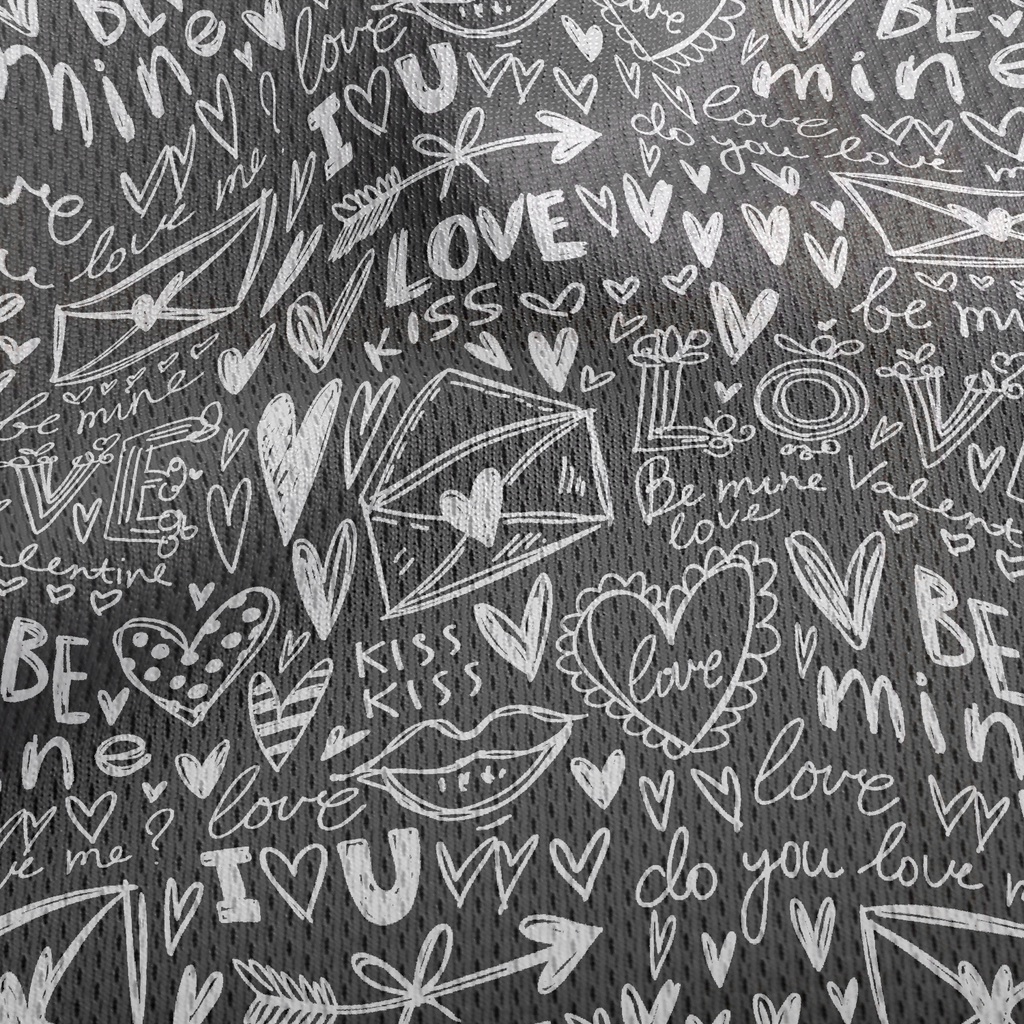 BE
BE
mine
love
love
I U
mine
love
do you love
me
love
LOVE
KISS
be mi
be mine
LOV
VE
Be mine Valent
love
alentine
BE
KISS
KISS
love
BE
min
ne
love
love
me ?
I U
do you love